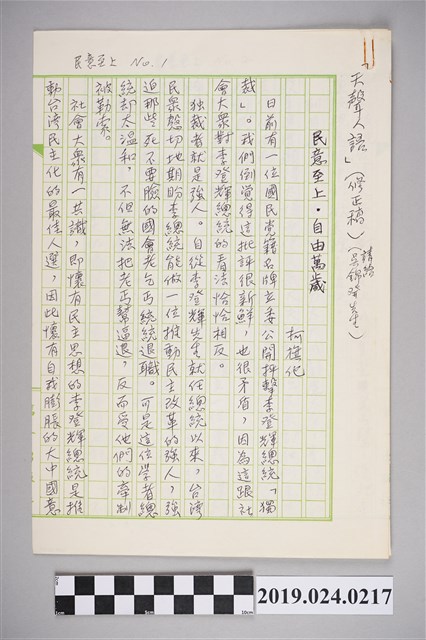 天聲人語」(修正稿)(請給吳錦發先生)
民意至上 No. 1
民意至上・自由萬歲
柯旗化
日前有一位國民党籍名牌立委公開抨擊李登輝總統「獨
裁」。我們倒覺得這批評很新鮮,也很矛盾,因為這跟社
會大衆對李登輝總統的看法恰恰相反。
獨裁者就是強人。自從李登輝先生就任總統以來,台湾
民衆熱切地期盼李總統能做一位推動民主改革的強人,強
迫那些死不要臉的國會老乞丐統統退職。可是這位學者總
統却太溫和,不但無法把老丐幫逼退,反而受他們的牽制
被勒索。
社會大衆有一共識,即懷有民主思想的李登輝總統是推
動台湾民主化的最佳人選,因此懷有自我膨脹的大中國意
1cm 5cm 10cm
2019.024.0217